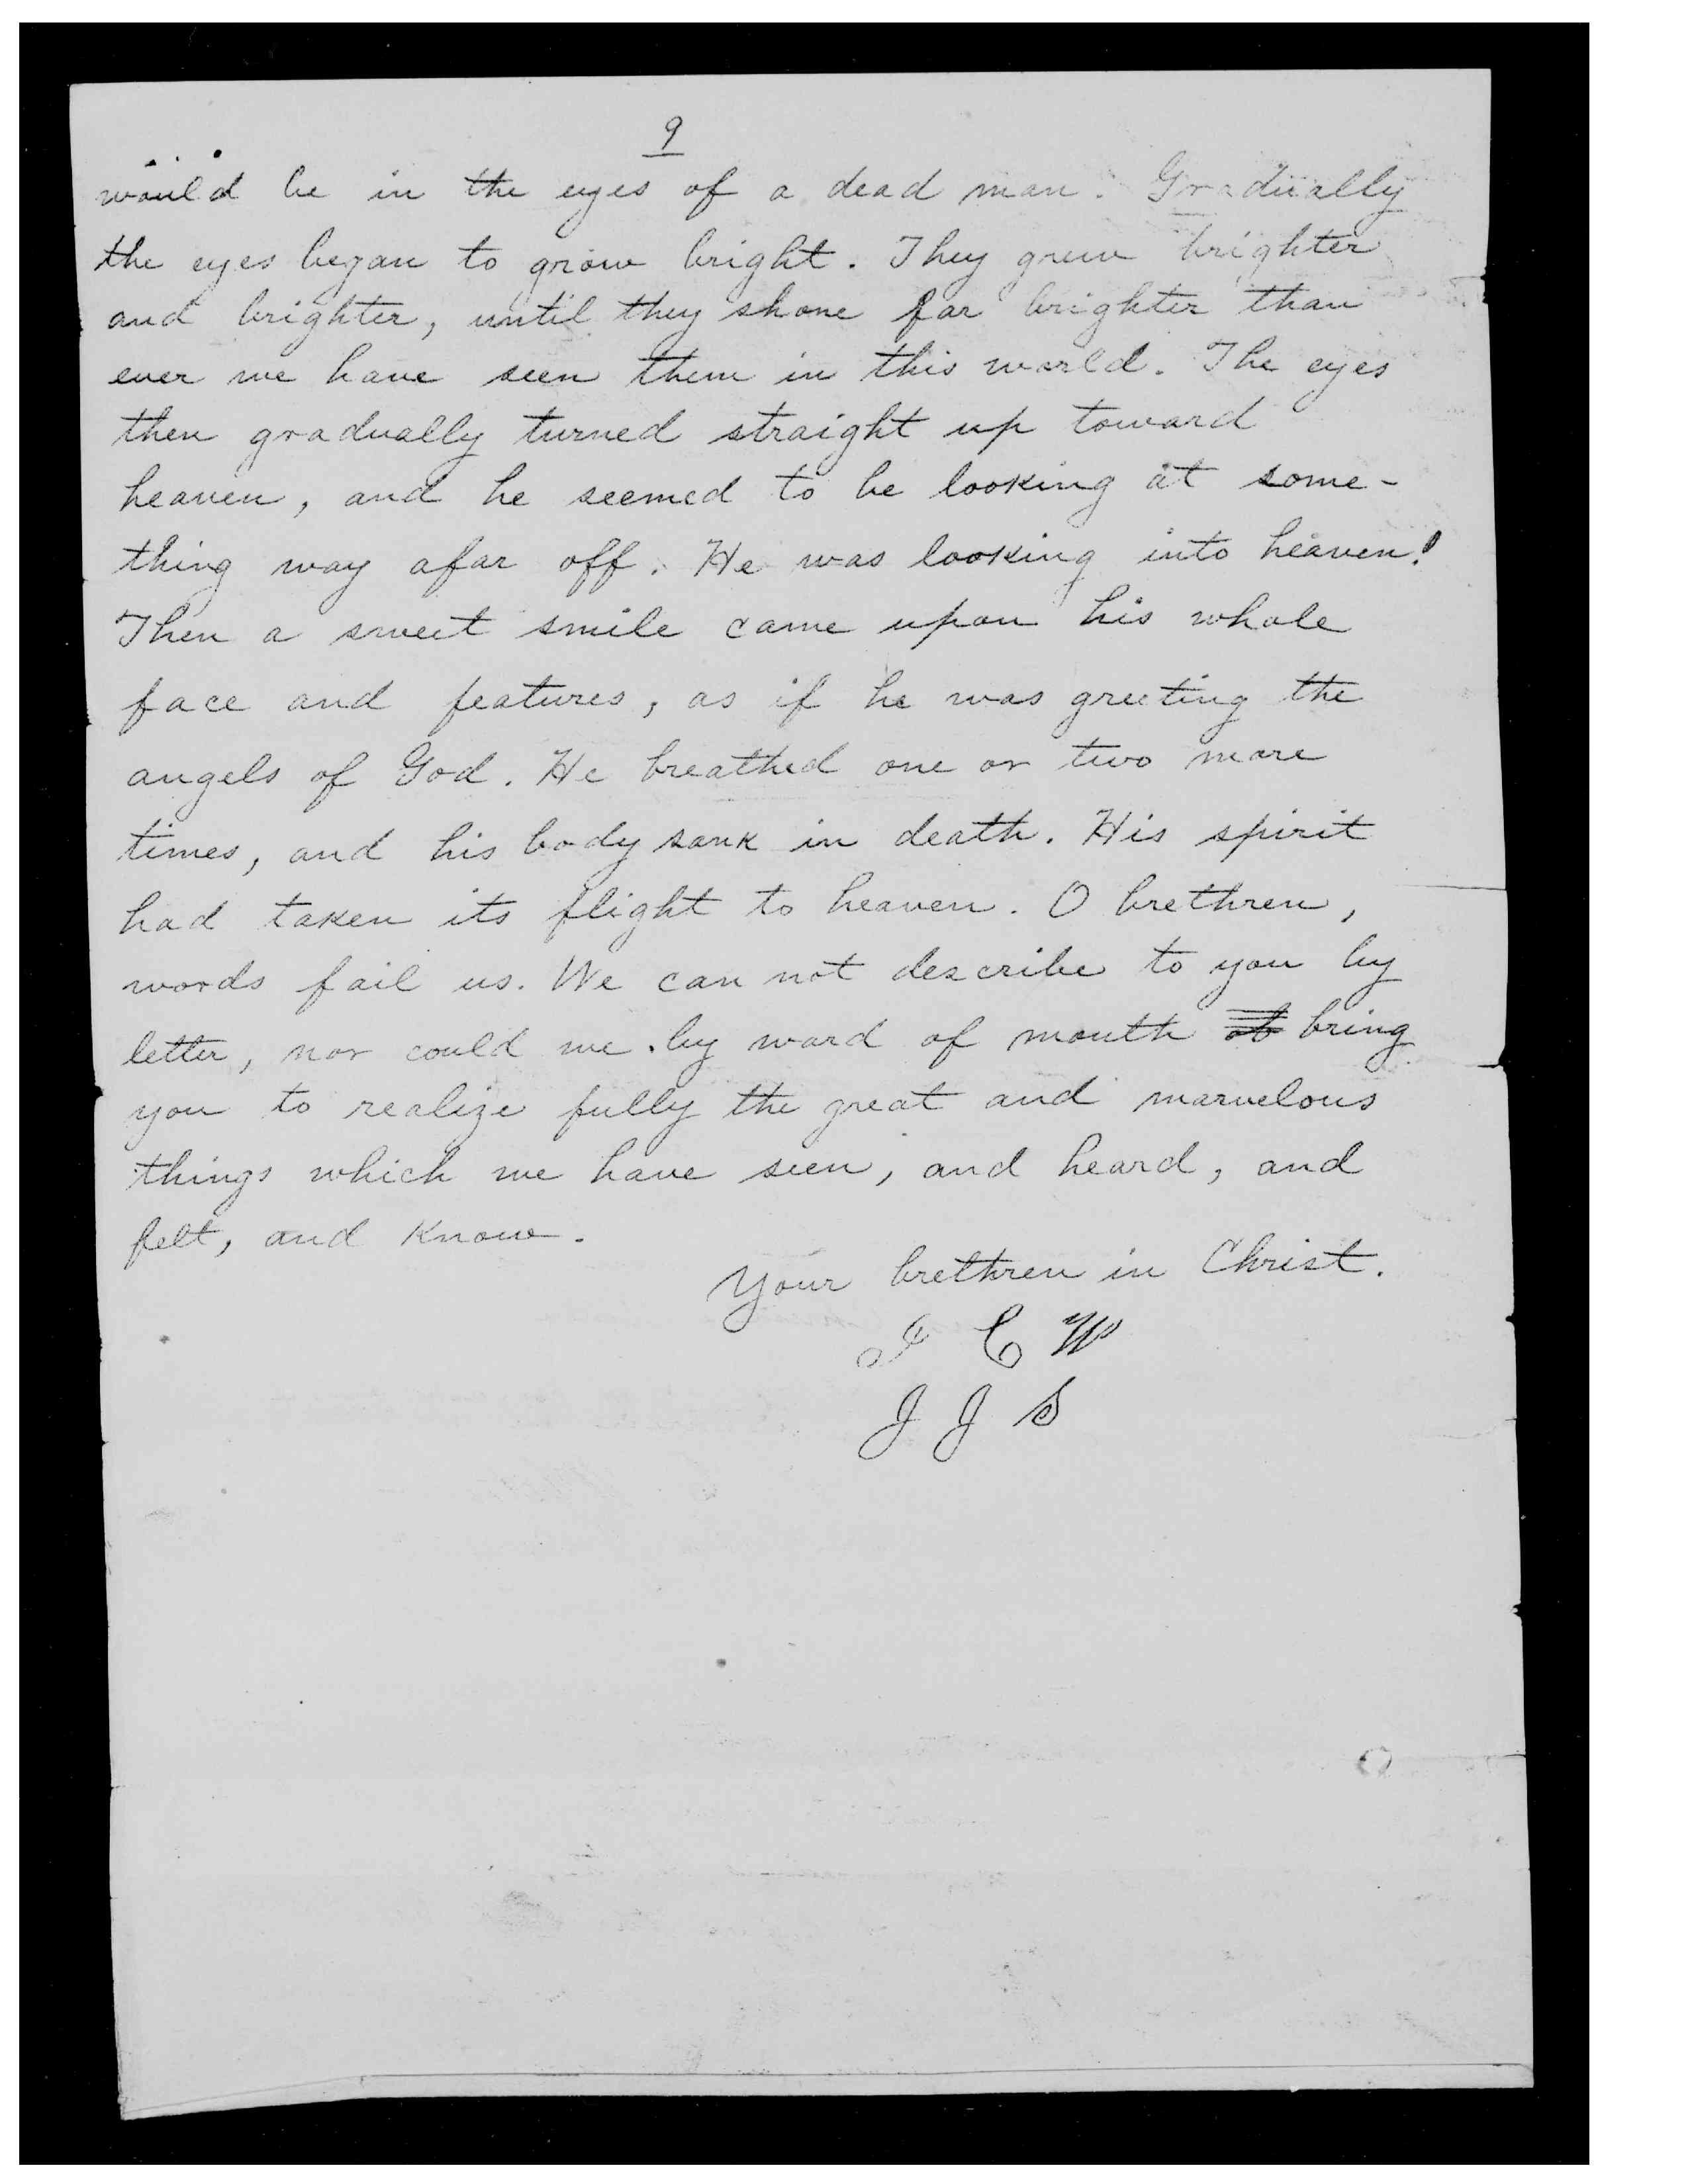 9
would be in the eyes of a dead man. Gradually
the eyes began to grow bright. They grew brighter
and brighter, until they shone far brighter than
ever we have seen them in this world. The eyes
then gradually turned straight up toward
heaven, and he seemed to be looking at some-
thing way afar off. He was looking into heaven!
Then a sweet smile came upon his whole
face and features, as if he was greeting the
angels of God. He breathed one or two more
times, and his body sank in death. His spirit
had taken its flight to heaven. O brethren,
words fail us. We can not describe to you by
letter, nor could we by word of mouth bring
you to realize fully the great and marvelous
things which we have seen, and heard, and
felt, and know.
Your brethren in Christ.
C W
J J S